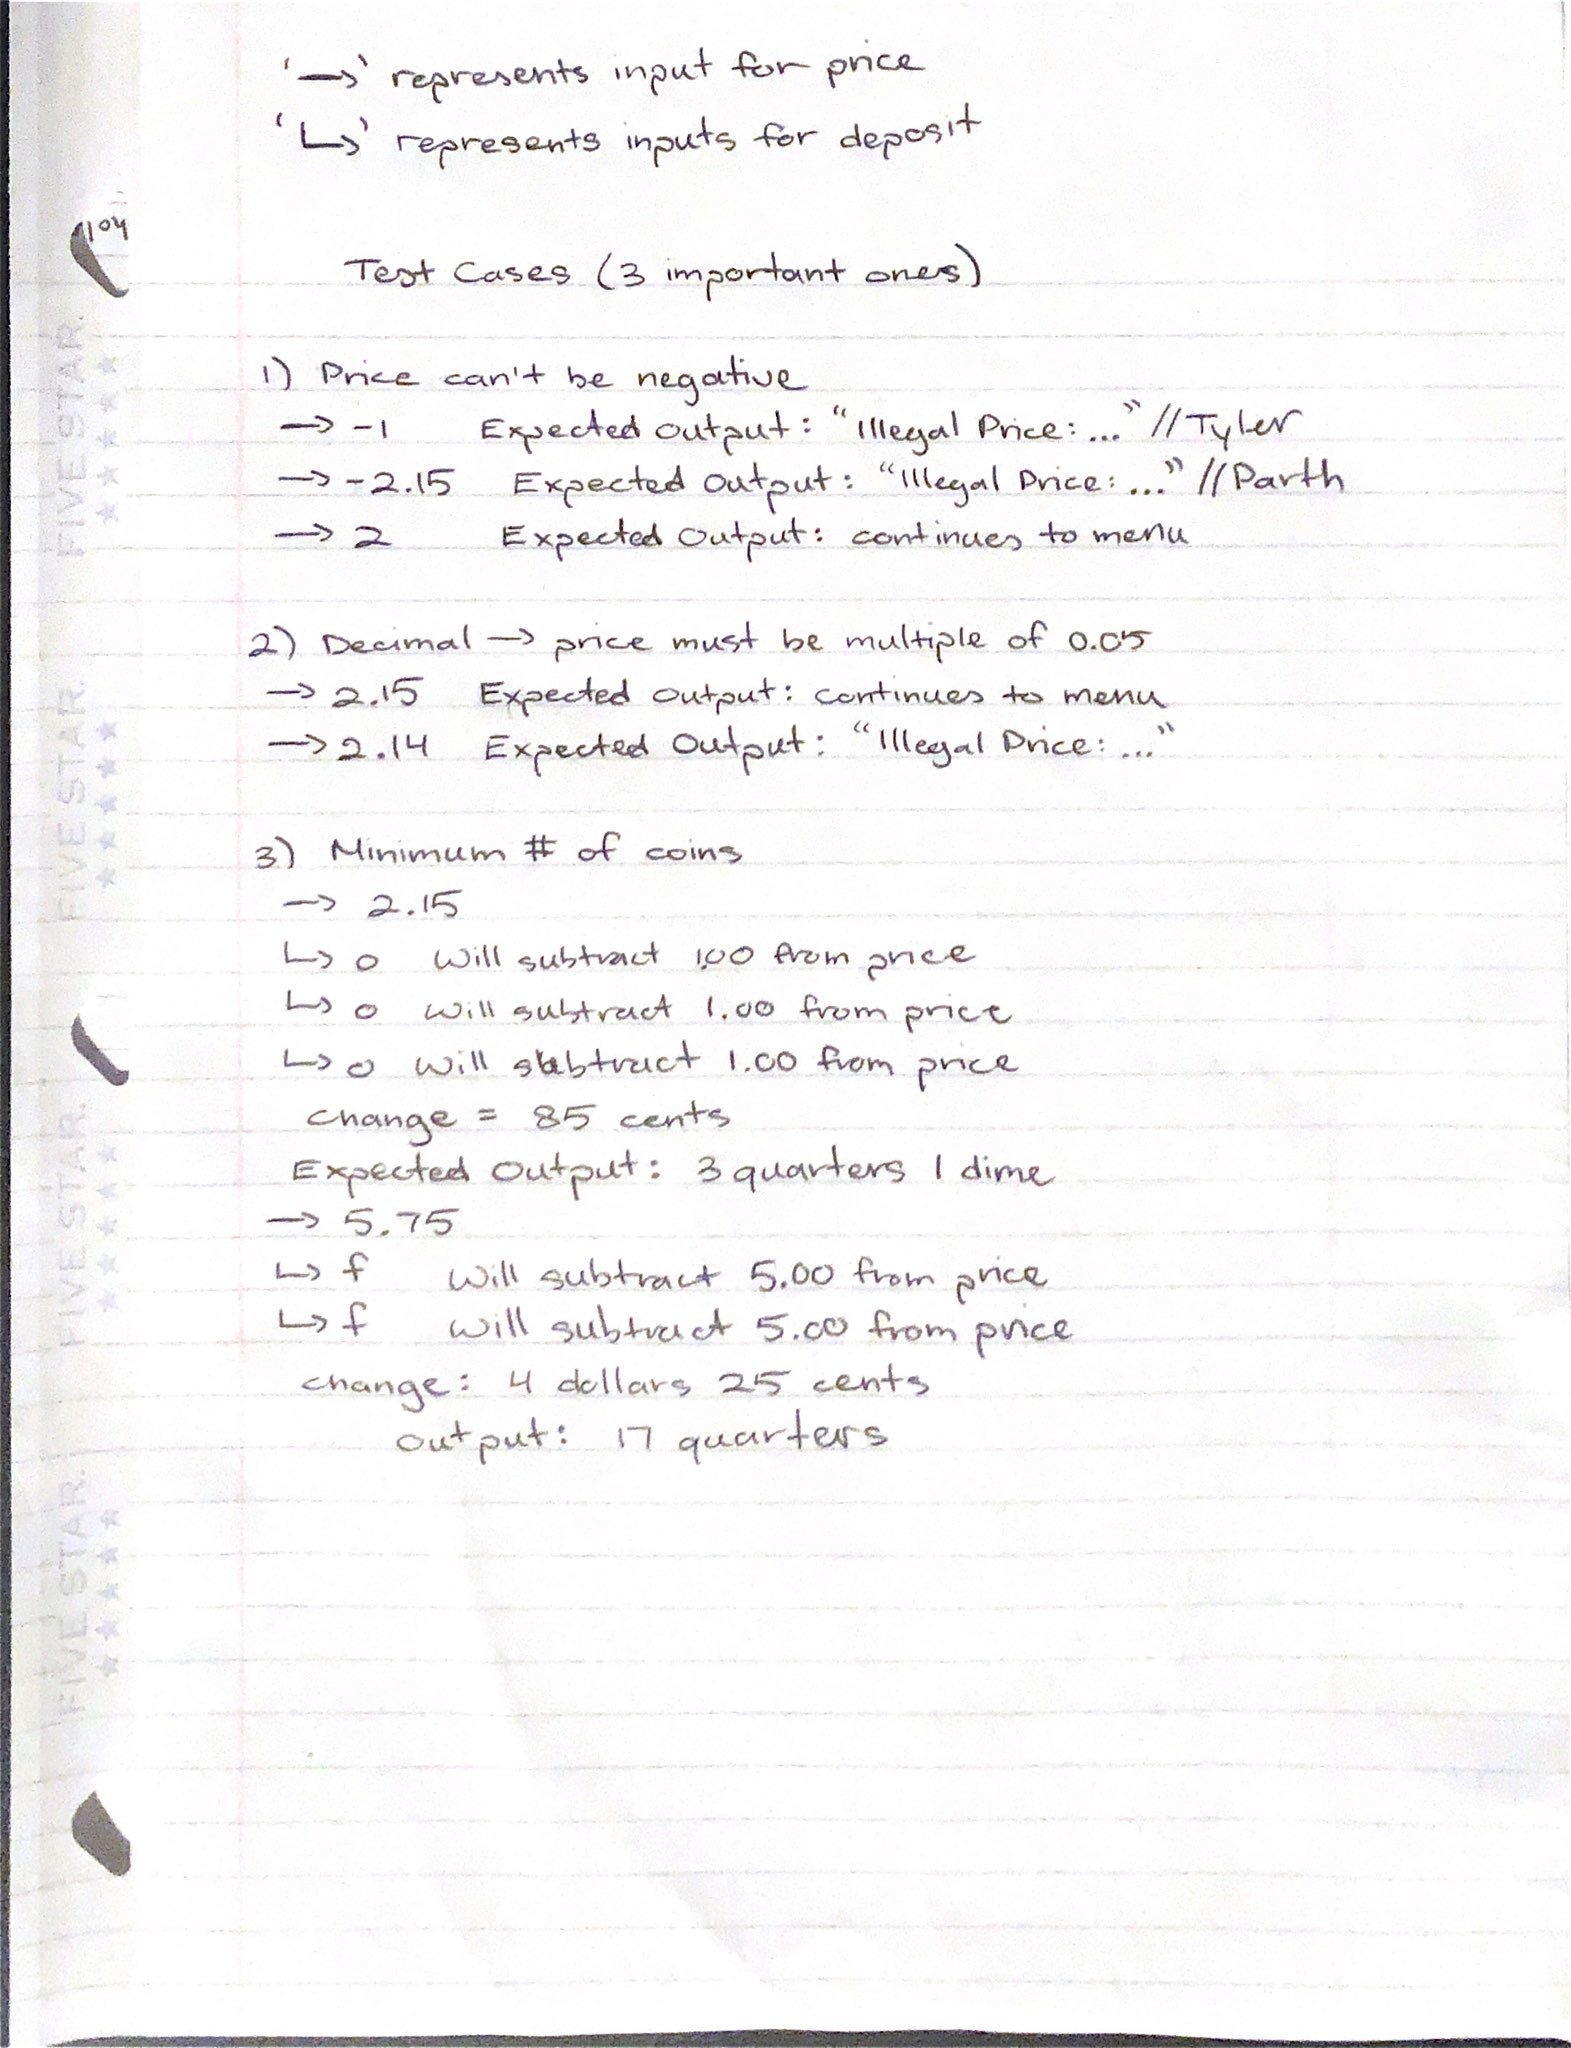 '→' represents input for price
'↳' represents inputs for deposit
104
Test Cases (3 important ones)
1) Price can't be negative
→ -1 Expected Output: "Illegal Price: ..." //Tyler
→ -2.15 Expected Output: "Illegal Price: ..." //Parth
→ 2 Expected Output: continues to menu
2) Decimal → price must be multiple of 0.05
→ 2.15 Expected Output: continues to menu
→ 2.14 Expected Output: "Illegal Price: ..."
3) Minimum # of coins
→ 2.15
↳ o Will subtract 1.00 from price
↳ o Will subtract 1.00 from price
↳ o Will subtract 1.00 from price
change = 85 cents
Expected Output: 3 quarters 1 dime
→ 5.75
↳ f Will subtract 5.00 from price
↳ f Will subtract 5.00 from price
change: 4 dollars 25 cents
Output: 17 quarters
FIVE STAR.
FIVE STAR.
FIVE STAR.
FIVE STAR.